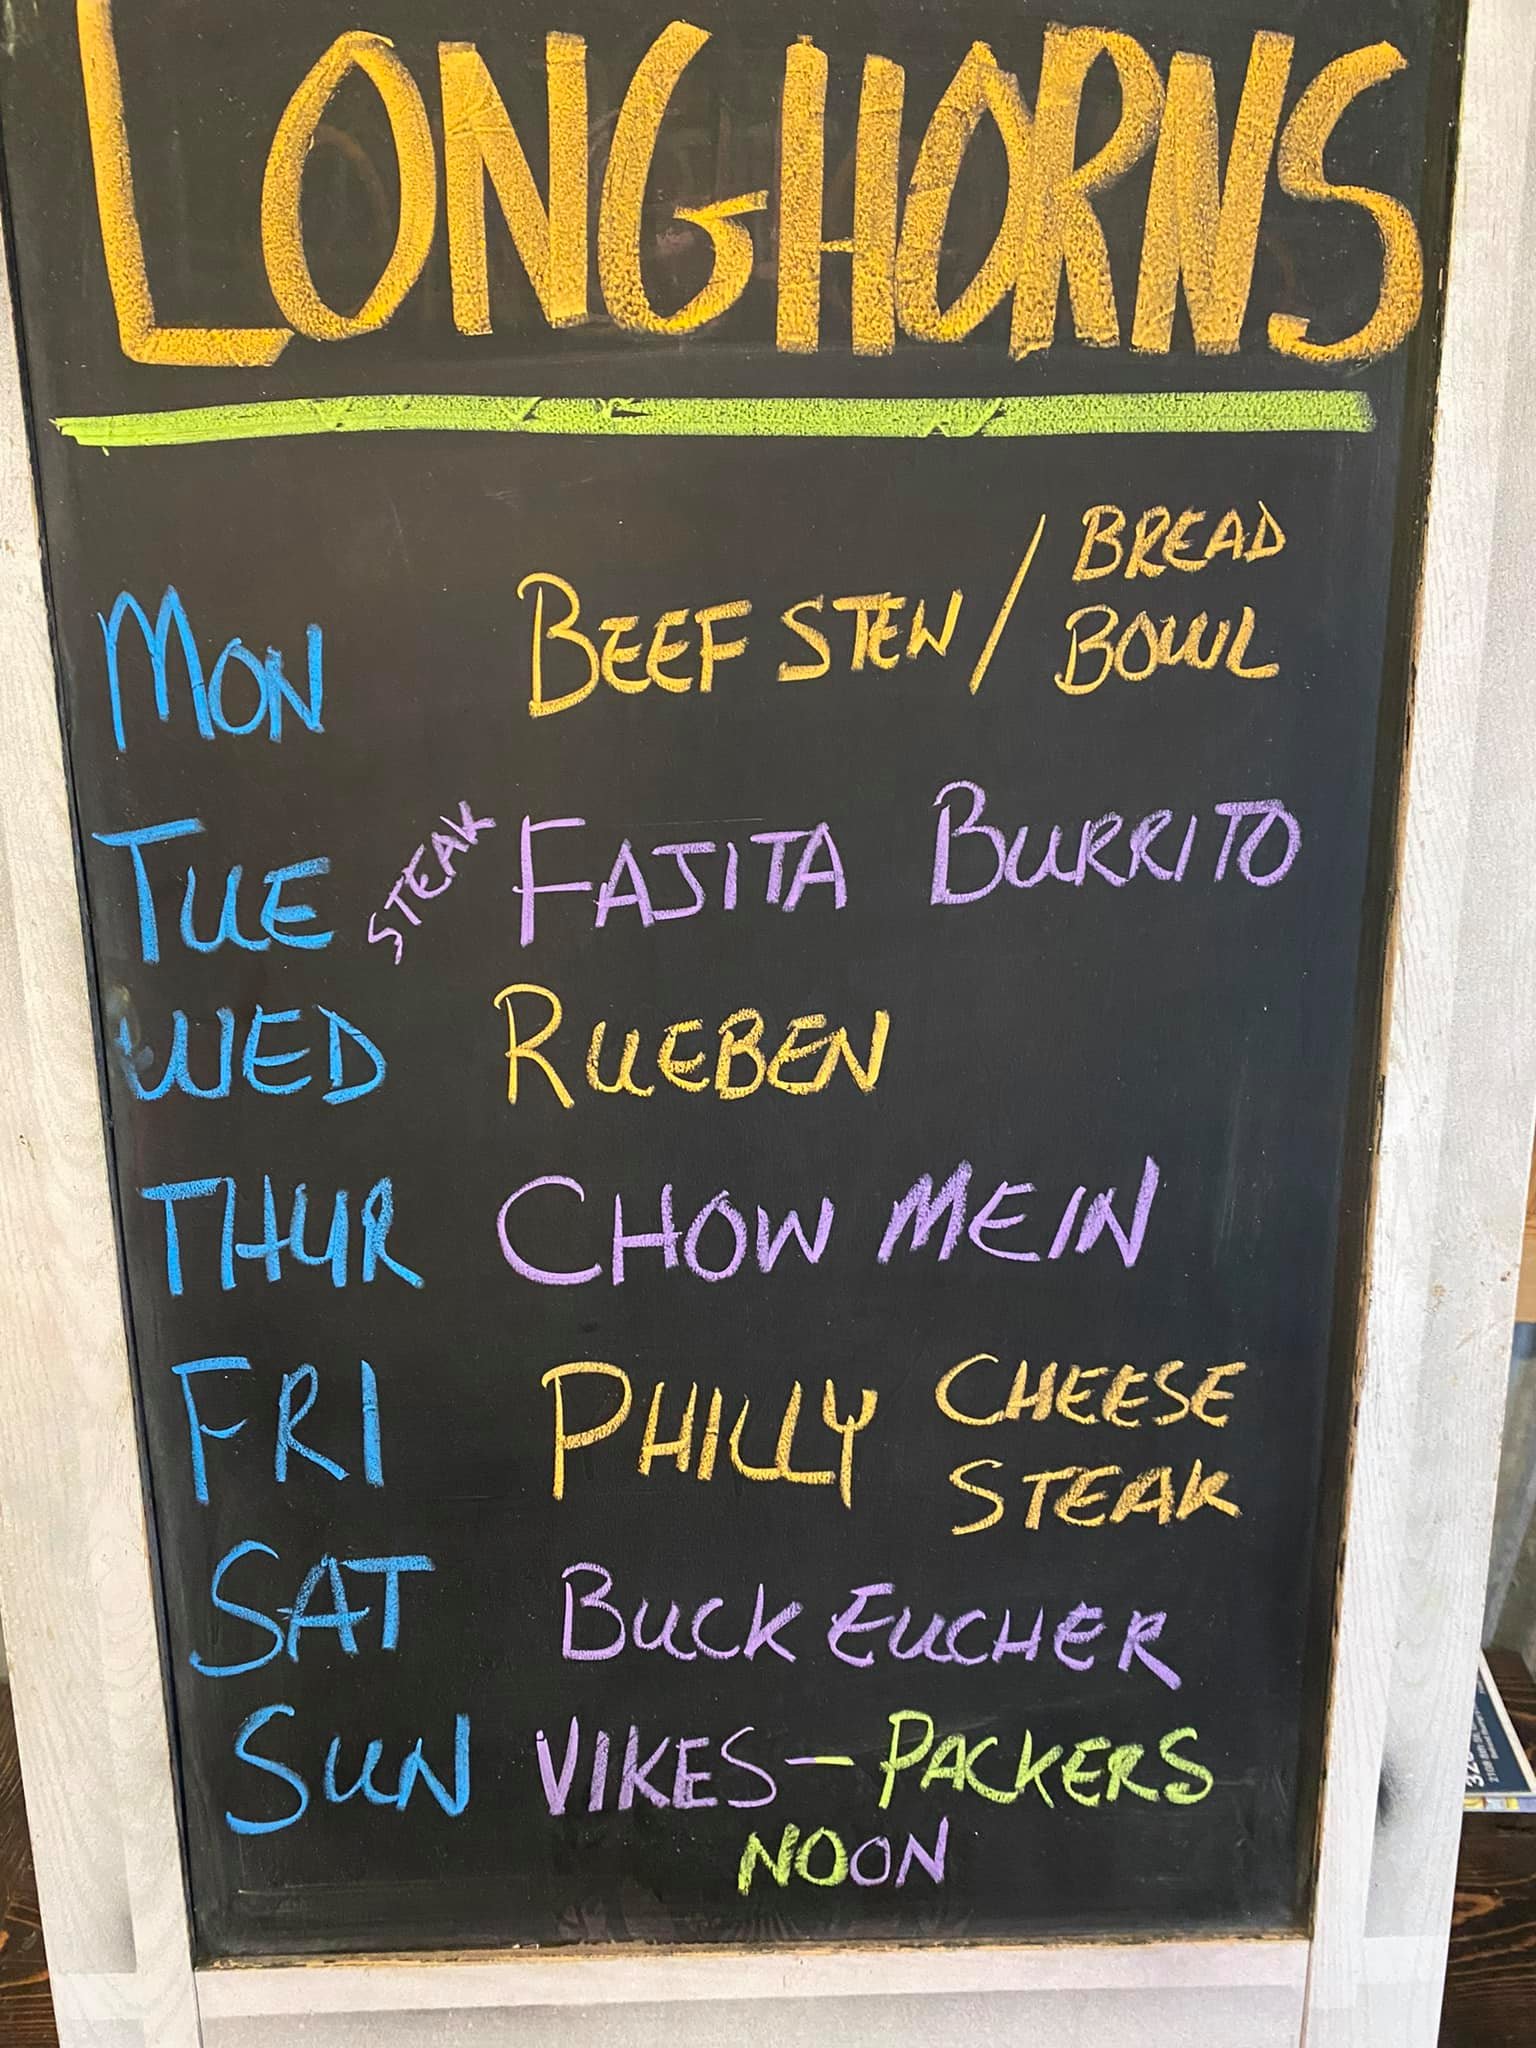 LONGHORNS
MON BEEF STEW / BREAD BOWL
TUE STEAK FAJITA BURRITO
WED RUEBEN
THUR CHOW MEIN
FRI PHILLY CHEESE STEAK
SAT BUCK EUCHER
SUN VIKES - PACKERS
NOON